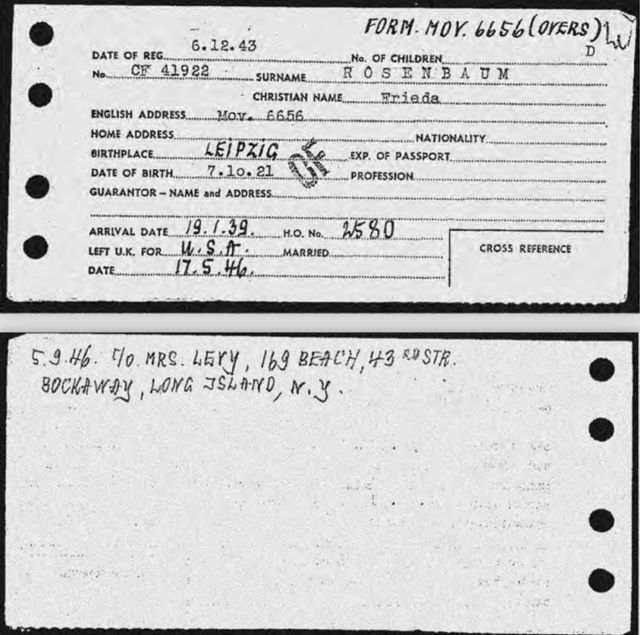 FORM. MOV. 6656 (OVERS)
D
DATE OF REG. 6.12.43 No. OF CHILDREN
No. CF 41922 SURNAME ROSENBAUM
CHRISTIAN NAME Frieda
ENGLISH ADDRESS Mov. 6656
HOME ADDRESS NATIONALITY
BIRTHPLACE LEIPZIG EXP. OF PASSPORT
DATE OF BIRTH 7.10.21 PROFESSION
CF
GUARANTOR – NAME and ADDRESS
ARRIVAL DATE 19.1.39. H.O. No. 2580
LEFT U.K. FOR U.S.A. MARRIED
CROSS REFERENCE
DATE 17.5.46.
5.9.46. C/O. MRS. LEVY, 169 BEACH, 43 RD STR.
ROCKAWAY, LONG ISLAND, N.Y.